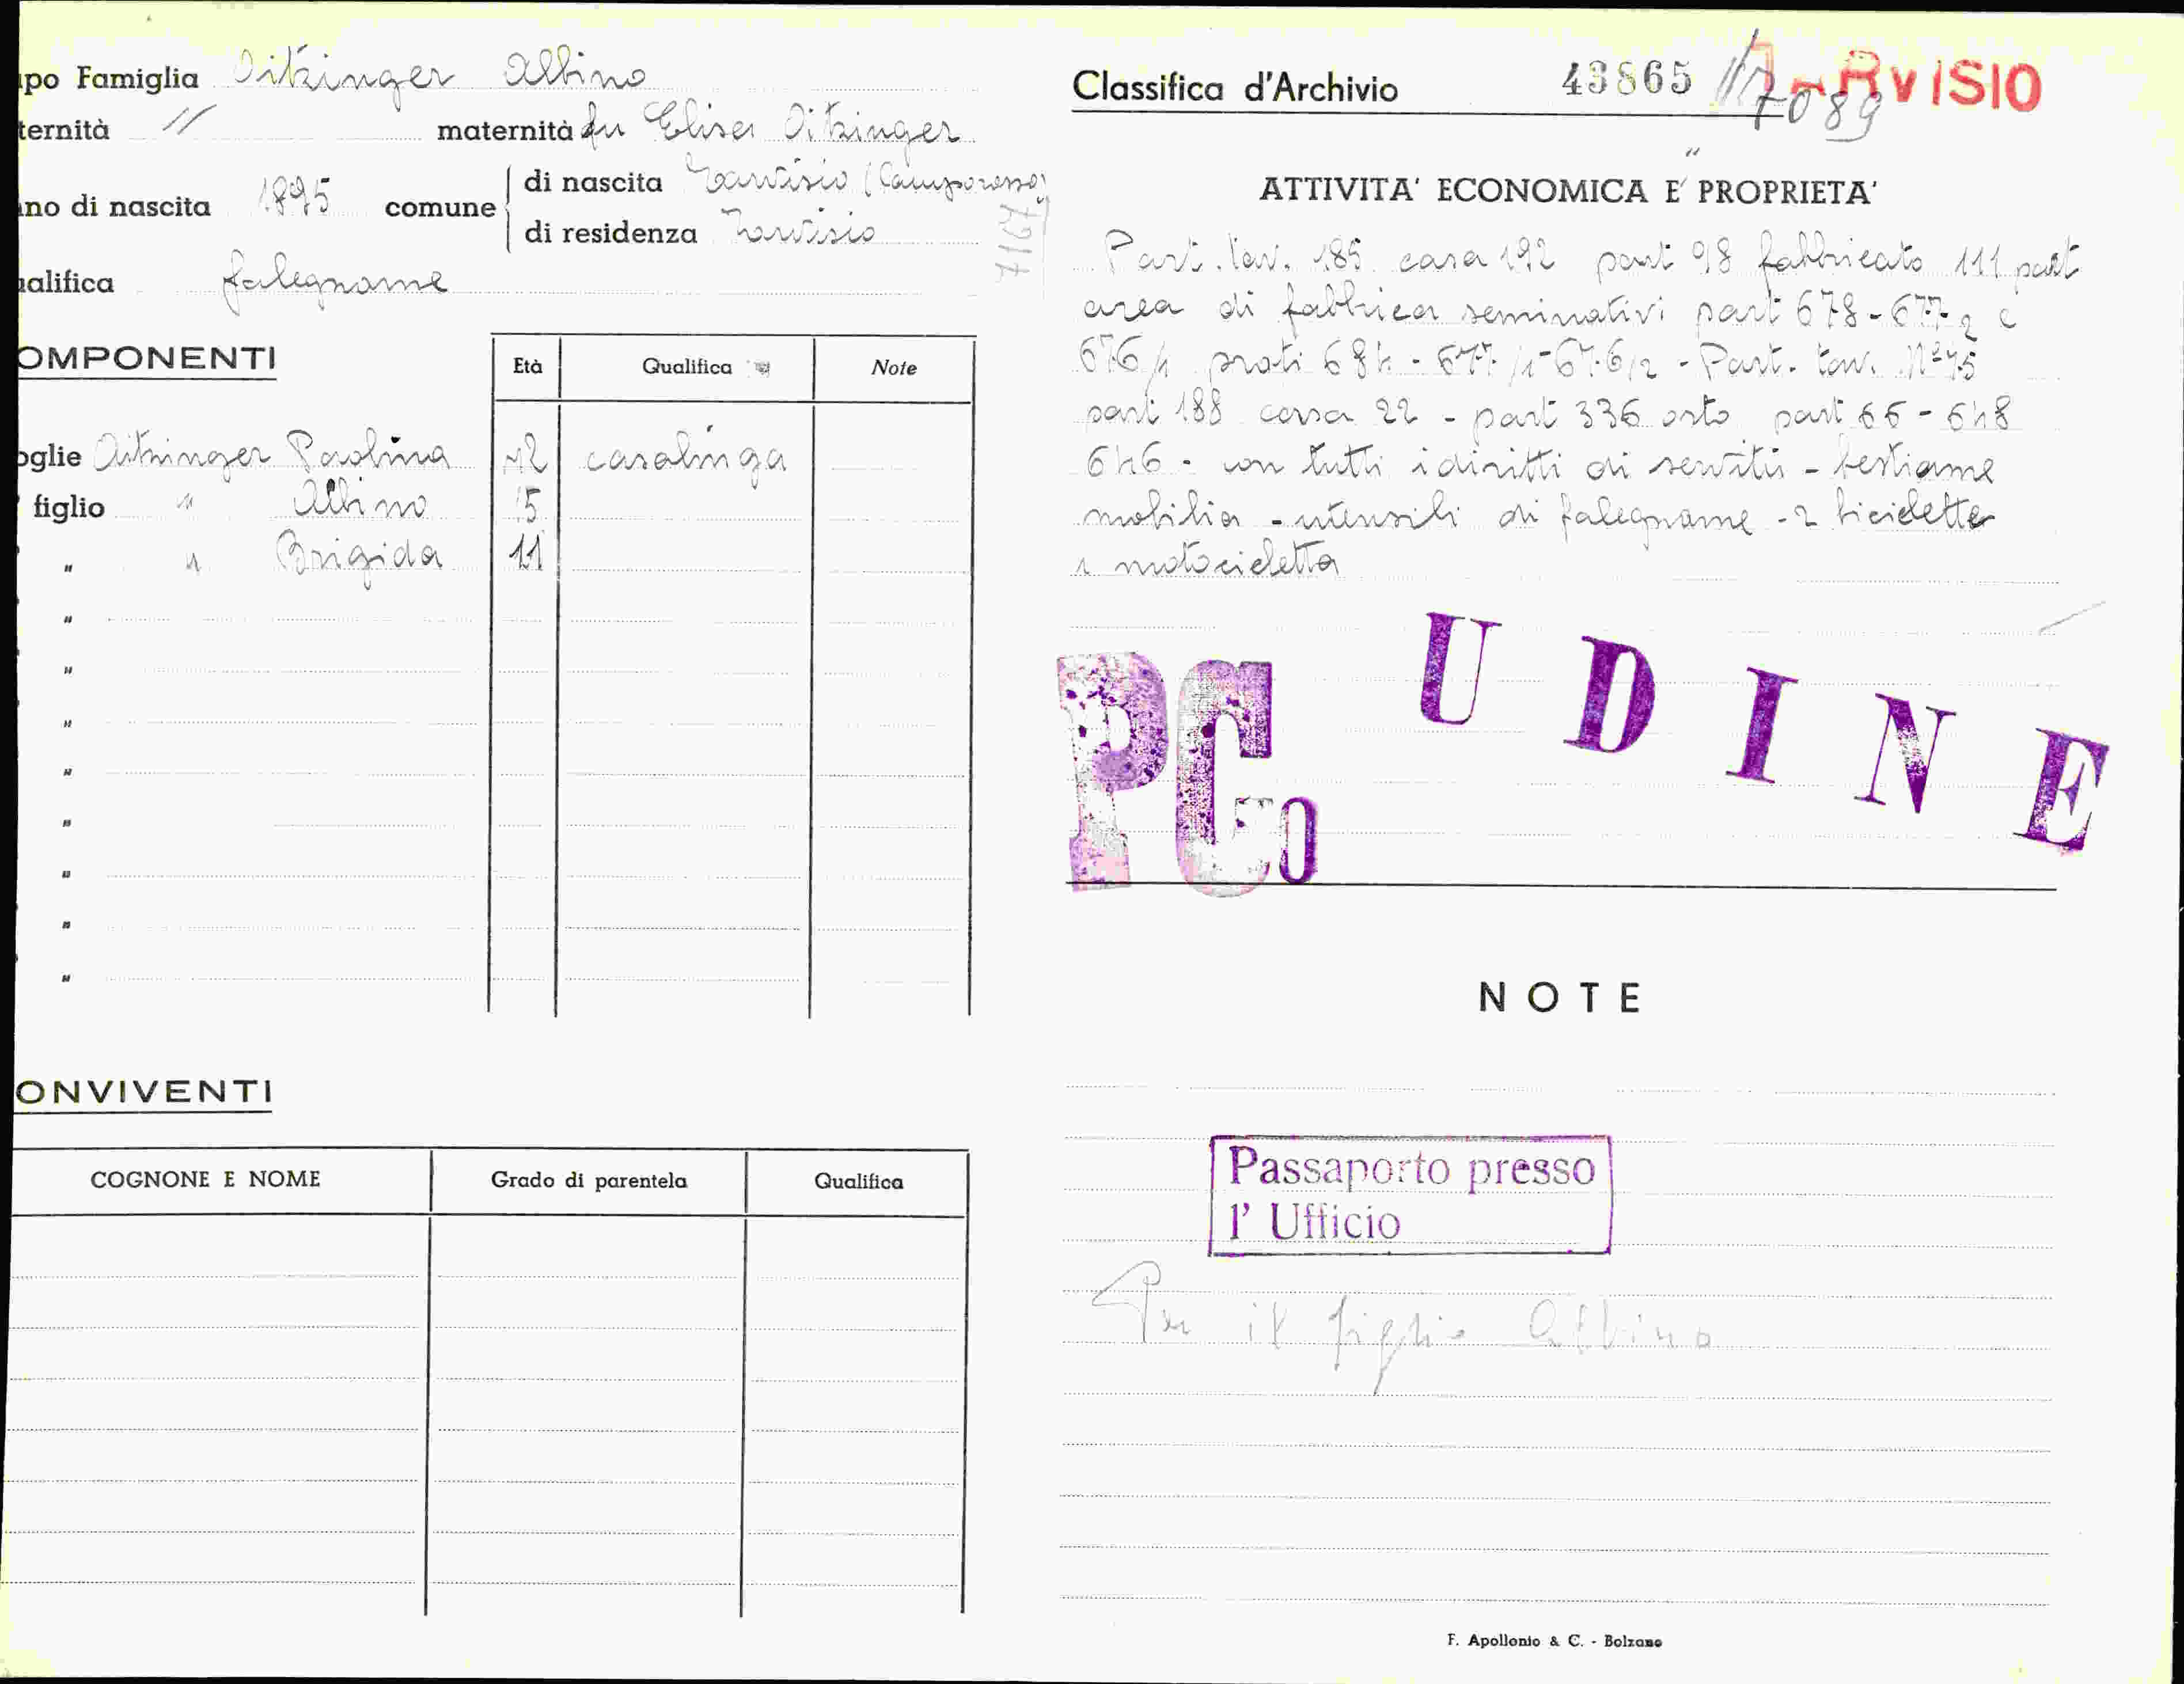 po Famiglia Oitzinger Albino
ternità // maternità fu Elisa Oitzinger
no di nascita 1895 comune di nascita Tarvisio (Camporosso)
di residenza Tarvisio
alifica falegname
OMPONENTI
Età Qualifica Note
oglie Oitzinger Paolina 42 casalinga
figlio " Albino 5
" " Brigida 11
"
"
"
"
"
"
"
"
ONVIVENTI
COGNONE E NOME Grado di parentela Qualifica
Classifica d'Archivio 43865 TARVISIO
7089
ATTIVITA' ECONOMICA E PROPRIETA'
Part. tav. 185 casa 192 part 98 fabbricato 111 part
area di fabbrica seminativi part 678 - 677/2 e
676/1 prati 684 - 677/1 - 676/2 - Part. tav. N° 45
part 188 casa 22 - part 336 orto part 66 - 648
646 - con tutti i diritti di servitù - bestiame
mobilia - utensili di falegname - 2 biciclette
1 motocicletta
PGo UDINE
NOTE
Passaporto presso
l' Ufficio
Per il figlio Albino
F. Apollonio & C. - Bolzano